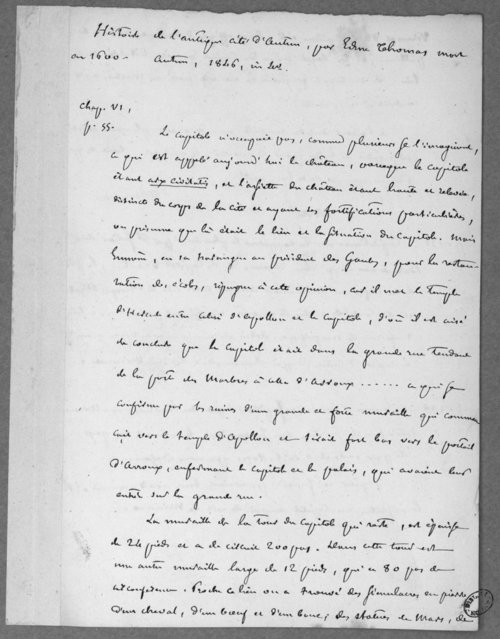 Histoire de l'antique cité d'Autun, par Edme Thomas mort
en 1600. Autun, 1846, in 4°.
chap. VI,
p. 55.
Le capitole n'occupoit pas, comme plusieurs se l'imaginent,
ce qui est appelé aujourd'hui le château, parceque le capitole
étant arx civitatis, et l'assiette du château étant haute et relevée,
distincte du corps de la cité et ayant ses fortifications particulières,
on présume que là était le lieu et la situation du capitole. Mais
Eumène, en sa harangue au président des Gaules, pour la restau-
ration des écoles, répugne à cette opinion, car il met le temple
d'Hercule entre celui d'Apollon et le Capitole, d'où il est aisé
de conclude que le capitole était dans la grande rue tendant
de la porte des Marbres à celle d'Arroux ...... ce qui se
confirme par les ruines d'une grande et forte muraille qui commen
çait vers le temple d'Apollon et tirait fort bas vers le portail
d'Arroux, enfermant le capitole et le palais, qui avaient leur
entrée sur la grande rue.
La muraille de la tour du Capitole qui reste, est épaisse
de 24 pieds et a de circuit 200 pas. Dans cette tour est
une autre muraille large de 12 pieds, qui a 80 pas de
circonférence. Proche ce lieu on a trouvé des simulacres en pierre
d'un cheval, d'un bœuf et d'un bouc; des statues de Mars, de